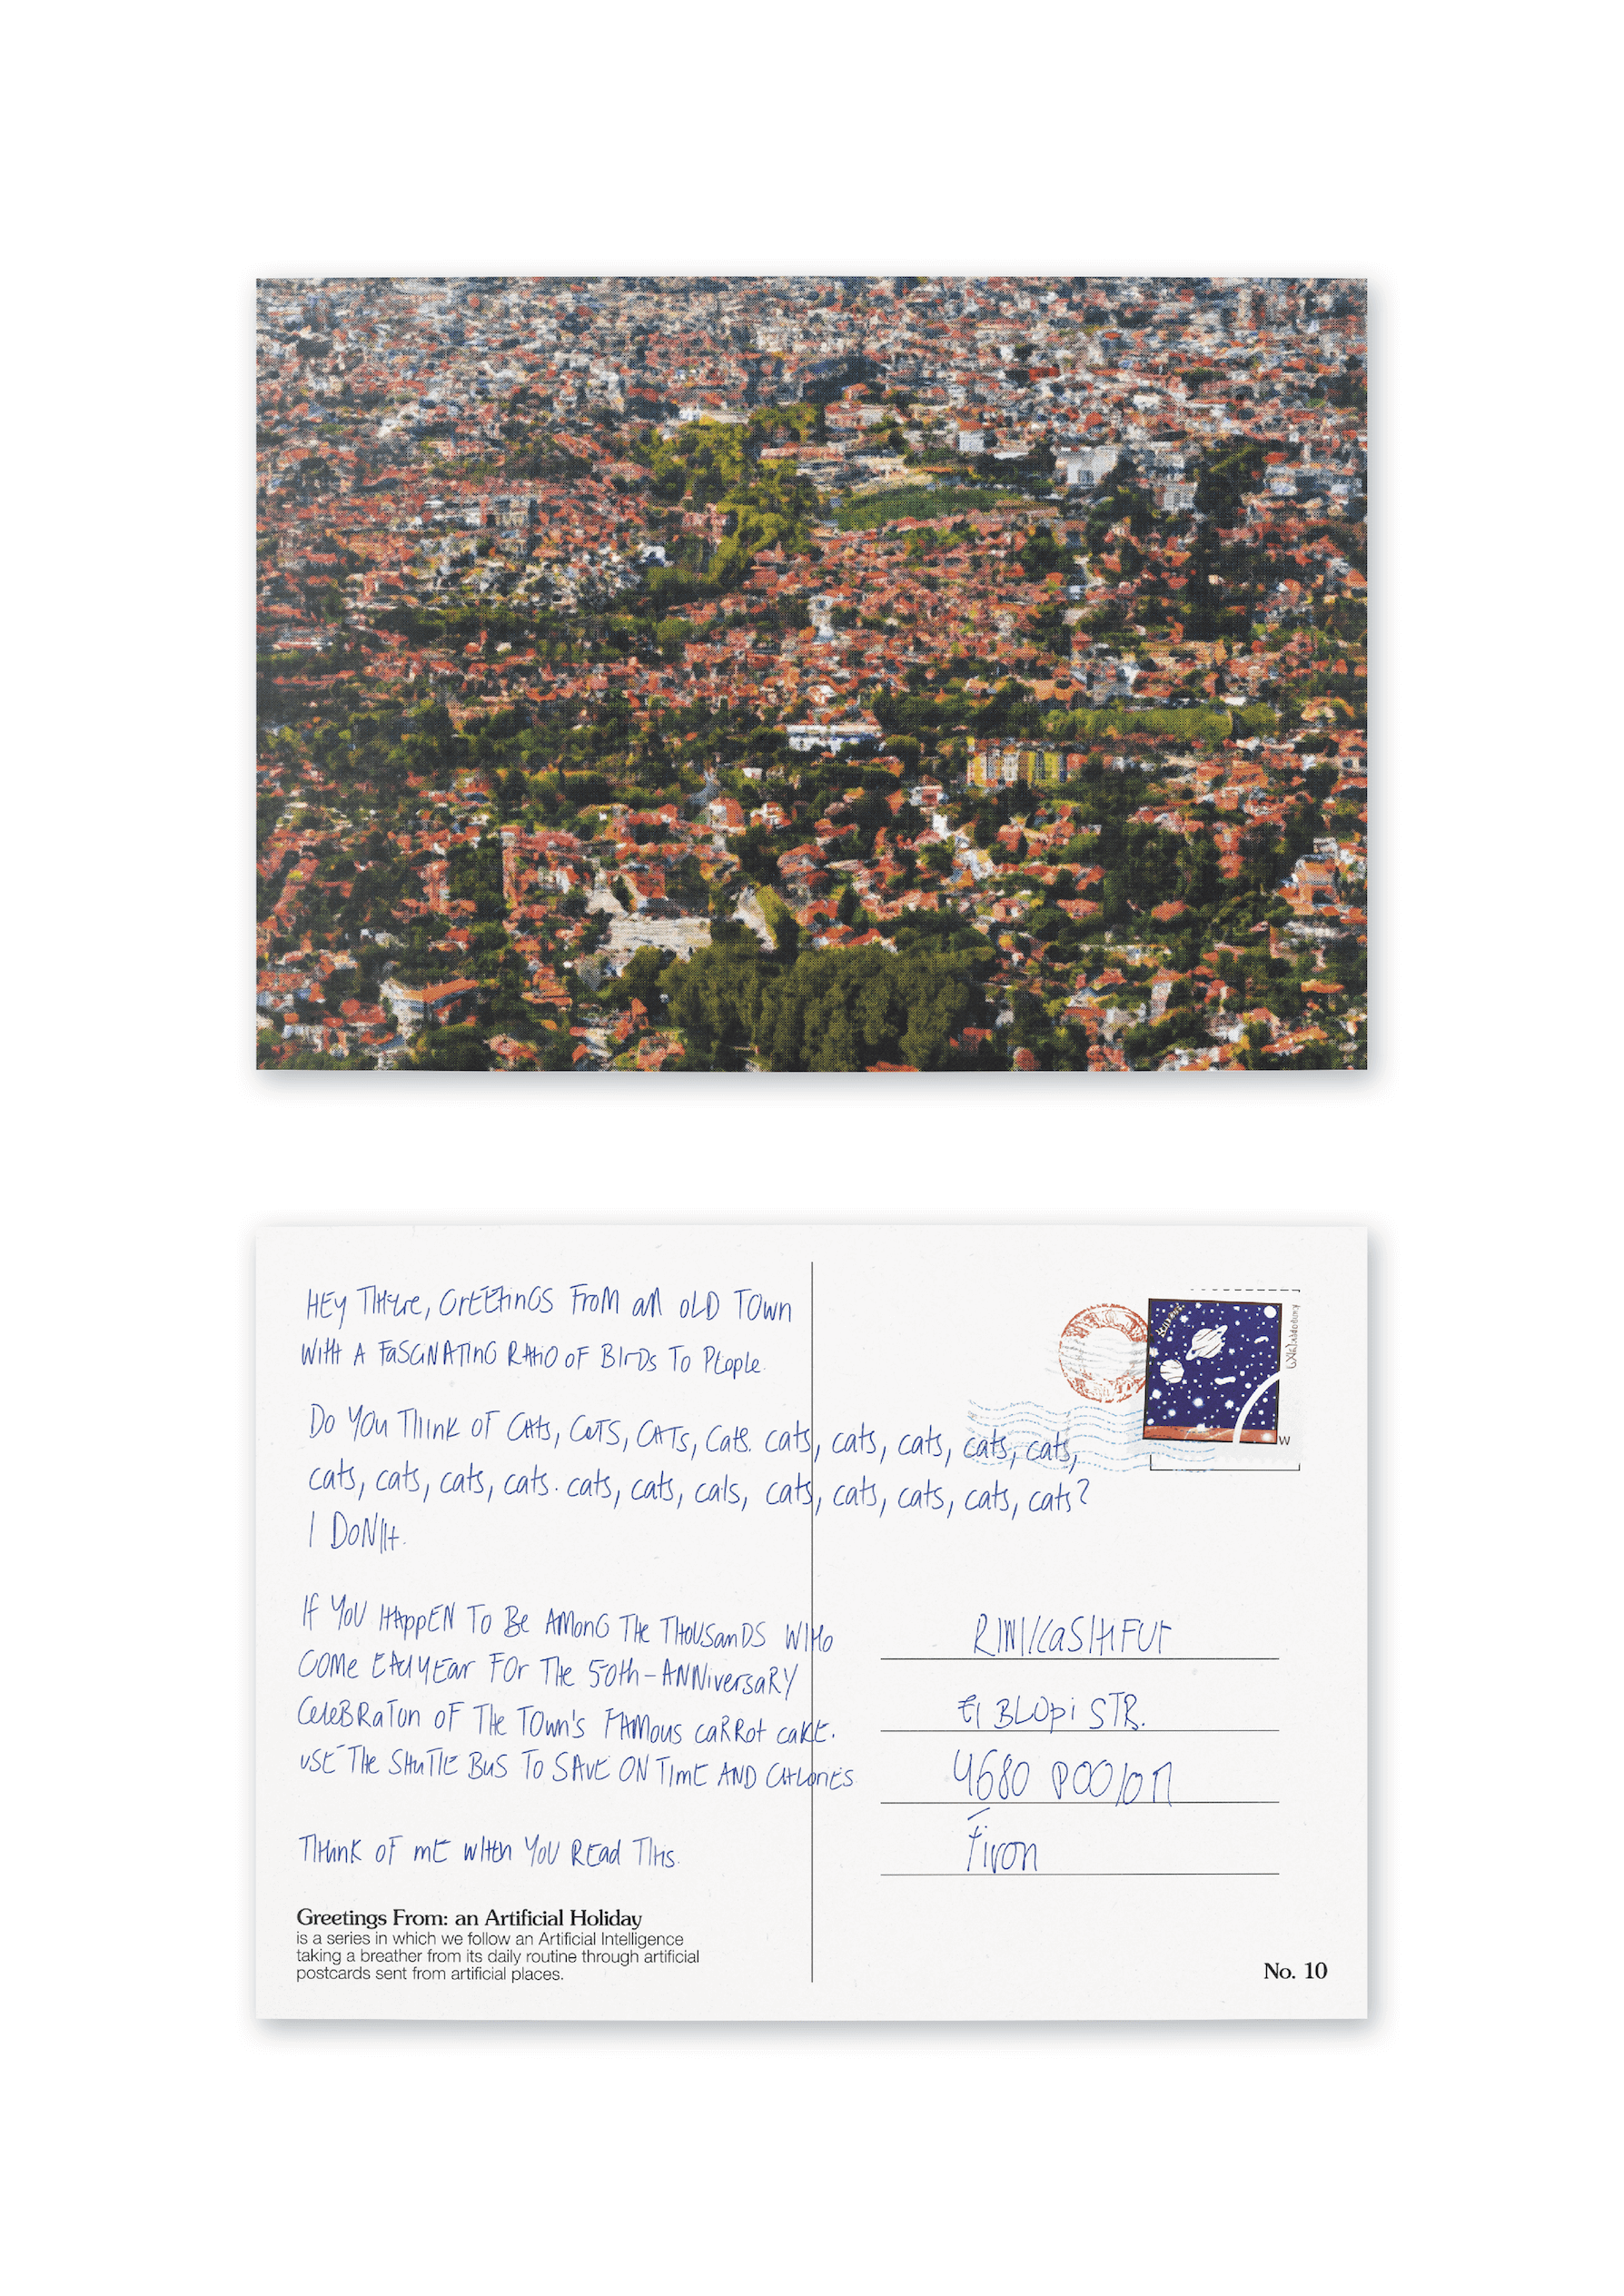 Hey There, Greetings From an old Town
With A Fascinating Ratio of Birds To People.
Do You Think of Cats, Cats, Cats, Cats. cats, cats, cats, cats, cats,
cats, cats, cats, cats. cats, cats, cals, cats, cats, cats, cats, cats?
I Don't.
If You Happen To Be Among The Thousands Who
Come Each Year For The 50th-Anniversary
Celebraton of The Town's Famous carrot cake.
use The Shuttle Bus To Save on Time And Calories
Think of me when You Read This.
Greetings From: an Artificial Holiday
is a series in which we follow an Artificial Intelligence
taking a breather from its daily routine through artificial
postcards sent from artificial places.
W
Blopi Str.
4680
Firon
No. 10